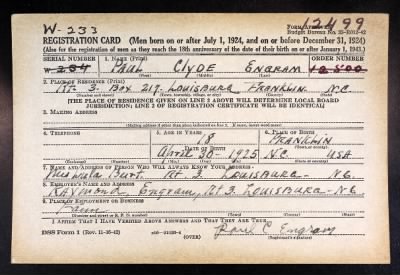 W-233
12499
FORM
Budget Bureau No. 33-R012-42
REGISTRATION CARD (Men born on or after July 1, 1924, and on or before December 31, 1924)
(Also for the registration of men as they reach the 18th anniversary of the date of their birth on or after January 1, 1943.)
SERIAL NUMBER 1. NAME (Print) ORDER NUMBER
W- Paul Clyde Engram
2. PLACE OF RESIDENCE (Print)
Rt. 3. Box 217. Louisburg Franklin N.C.
[THE PLACE OF RESIDENCE GIVEN ON LINE 2 ABOVE WILL DETERMINE LOCAL BOARD
JURISDICTION; LINE 2 OF REGISTRATION CERTIFICATE WILL BE IDENTICAL]
3. MAILING ADDRESS
[Mailing address if other than place indicated on line 2. If same, insert word same]
4. TELEPHONE 5. AGE IN YEARS 6. PLACE OF BIRTH
18 Franklin
DATE OF BIRTH
April 30 1925 N.C. USA
7. NAME AND ADDRESS OF PERSON WHO WILL ALWAYS KNOW YOUR ADDRESS
Burt. Rt. 3. Louisburg N.C.
8. EMPLOYER'S NAME AND ADDRESS
Raymond Engram, Rt. 3 Louisburg N.C.
9. PLACE OF EMPLOYMENT OR BUSINESS
Farm
I AFFIRM THAT I HAVE VERIFIED ABOVE ANSWERS AND THAT THEY ARE TRUE.
DSS Form 1 (Rev. 11-16-42) (OVER) Paul C. Engram
(Registrant's signature)